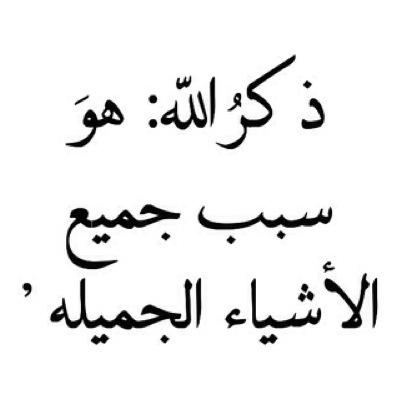 ذكرُ الله: هوَ
سبب جميع
الأشياء الجميله ’